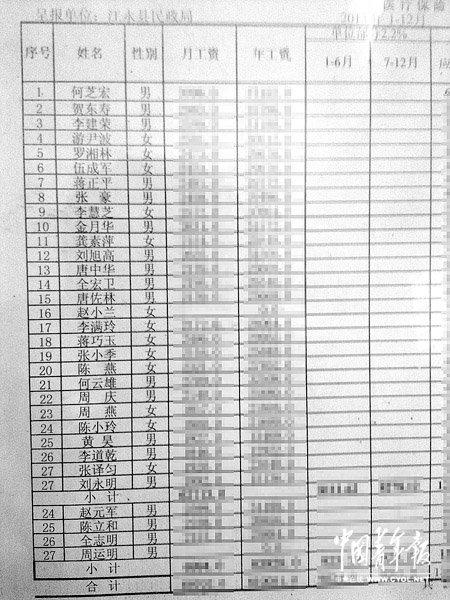 呈报单位：江永县民政局 医疗保险
1-12月
序号 姓名 性别 月工资 年工资 单位部 2.2%
1-6月 7-12月
1 何芝宏 男
2 贺东寿 男
3 李建荣 男
4 游尹波 女
5 罗湘林 女
6 伍成军 女
7 蒋正平 男
8 张豪 男
9 李慧芝 女
10 金月华 男
11 龚素萍 女
12 刘旭高 男
13 唐中华 男
14 全宏卫 男
15 唐佐林 男
16 赵小兰 女
17 李满玲 女
18 蒋巧玉 女
19 张小季 女
20 陈燕 女
21 何云雄 男
22 周庆 男
23 周燕 女
24 陈小玲 女
25 黄昊 男
26 李道乾 男
27 张译匀 女
27 刘永明 男
小计
24 赵元军 男
25 陈立和 男
26 全志明 男
27 周运明 男
小计
合计
中国青年报